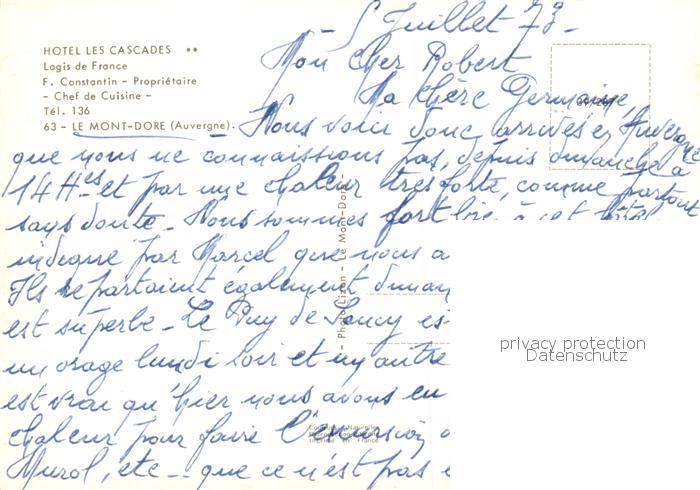 5 Juillet 73 -
HOTEL LES CASCADES **
Logis de France
F. Constantin - Propriétaire
- Chef de Cuisine -
Tél. 136
63 - LE MONT-DORE (Auvergne).
Mon Cher Robert
Ma chère Germaine,
- Nous voici donc arrivés en Auvergne
que nous ne connaissions pas, depuis dimanche à
14 Hes et par une chaleur très forte, comme partout
sans doute - Nous sommes fort bien à cet hôtel
indiqué par Marcel que nous a
Ils repartaient également diman
est superbe - Le Puy de Sancy es
un orage lundi soir et un autre
est vrai qu'hier nous avons eu
chaleur pour faire l'excursion
Murol, etc -- que ce n'est pas
- Photo Lizon - Le Mont-Dore -
Imprimé en France
privacy protection
Datenschutz